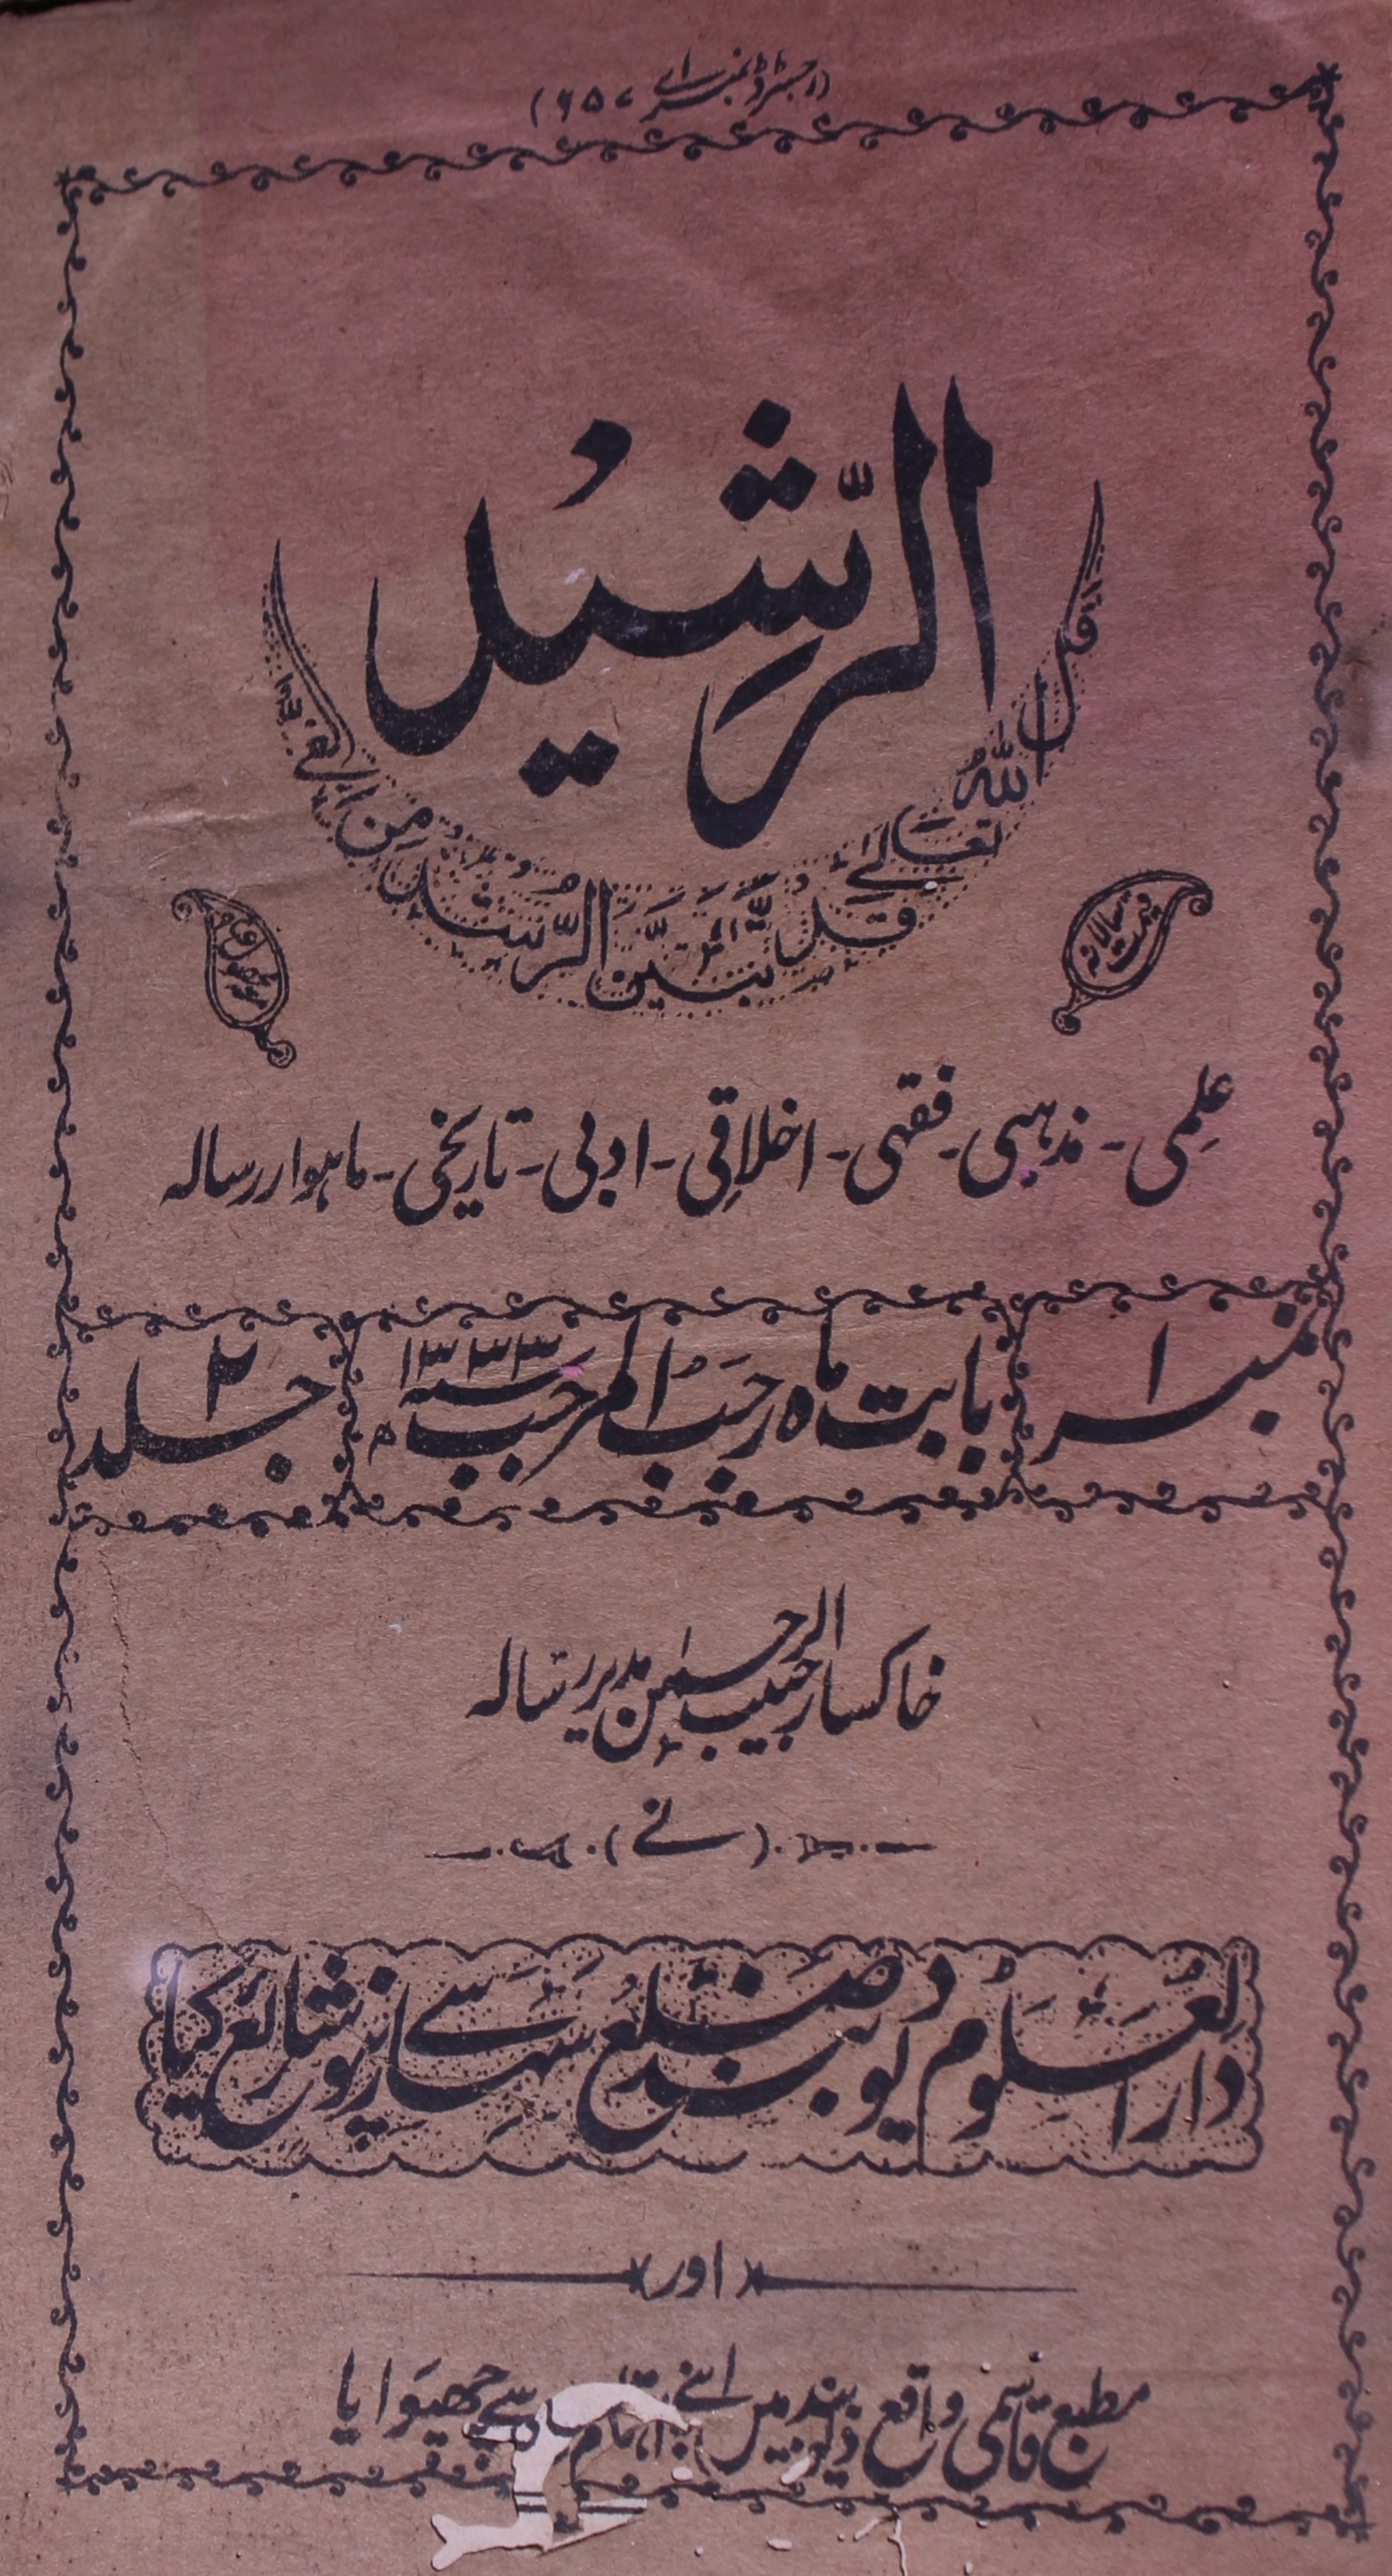 (رجسٹرڈ نمبر اے ۶۵۷)
الرَّشِیْدُ
قال اللہُ تعالےٰ قَدْ تَّبَیَّنَ الرُّشْدُ مِنَ الْغَیِّ
قیمت سالانہ
علمی - مذہبی - فقہی - اخلاقی - ادبی - تاریخی - ماہوار رسالہ
نمبر ۱
بابت ماہ رجب المرجب سنہ ۱۳۳۳ ھ
جلد ۲
خاکسار حبیب الرحمٰن مدیر رسالہ
(نے)
دار العلوم دیوبند ضلع سہارنپور سے شائع کیا
اور
مطبع قاسمی واقع دیوبند میں اپنے اہتمام سے چھپوایا